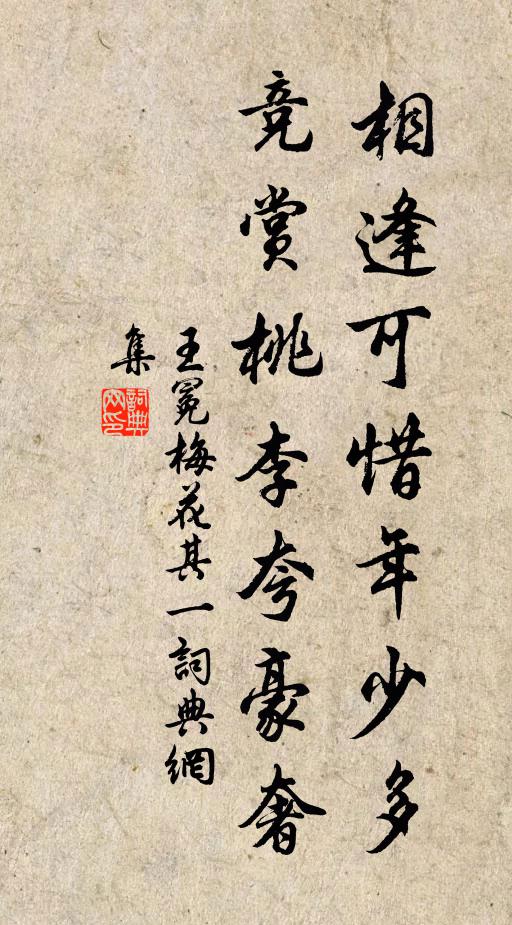 相逢可惜年少多
竞赏桃李夸豪奢
王冕梅花其一詞典網
集
詞典
网印